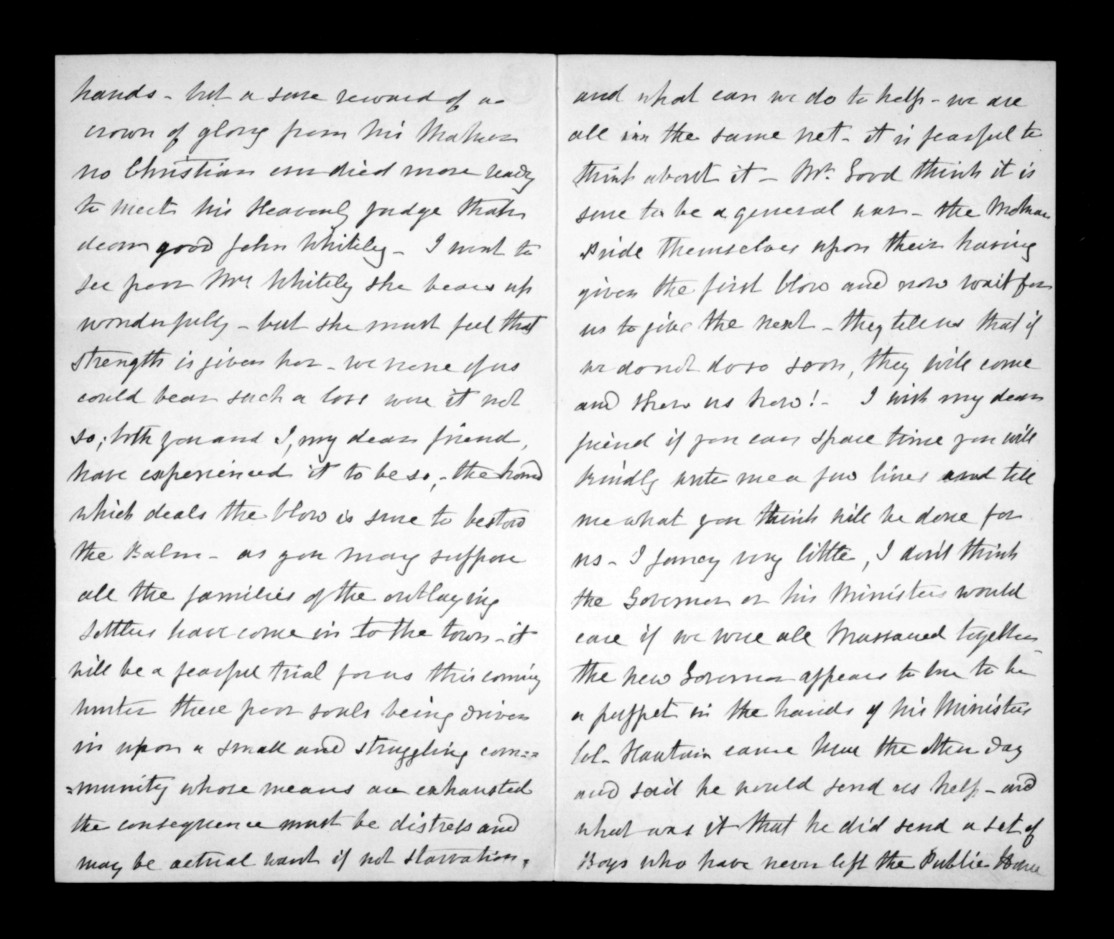 hands - but a sure reward of a
crown of glory from his Maker
no Christian ever died more ready
to meet his Heavenly judge than
dear good John Whiteley - I went to
see poor Mrs Whiteley she bears up
wonderfully - but she must feel that
strength is given her - we none of us
could bear such a loss were it not
so; both you and I, my dear friend,
have experienced it to be so, - the hand
which deals the blow is sure to bestow
the Balm - as you may suppose
all the families of the outlaying
settlers have come in to the town - it
will be a fearful trial for us this coming
winter these poor souls being driven
in upon a small and struggling com=
=munity whose means are exhausted
the consequence must be distress and
may be actual want if not starvation,
and what can we do to help - we are
all in the same net - it is fearful to
think about it - Mr. Govd think it is
sure to be a general war - the
pride themselves upon their having
given the first blow and now wait for
us to give the next - they tell us that if
we do not do so soon, they will come
and shew us how! - I wish my dear
friend if you can spare time you will
kindly write me a few lines and tell
me what you think will be done for
us - I fancy very little, I don't think
the Governor or his Ministers would
care if we were all Massacred together
the new Governor appears to me to be
a puppet in the hands of his Ministers
Col. Haultain came here the other day
and said he would send us help - and
what was it that he did send a set of
Boys who have never left the Public House